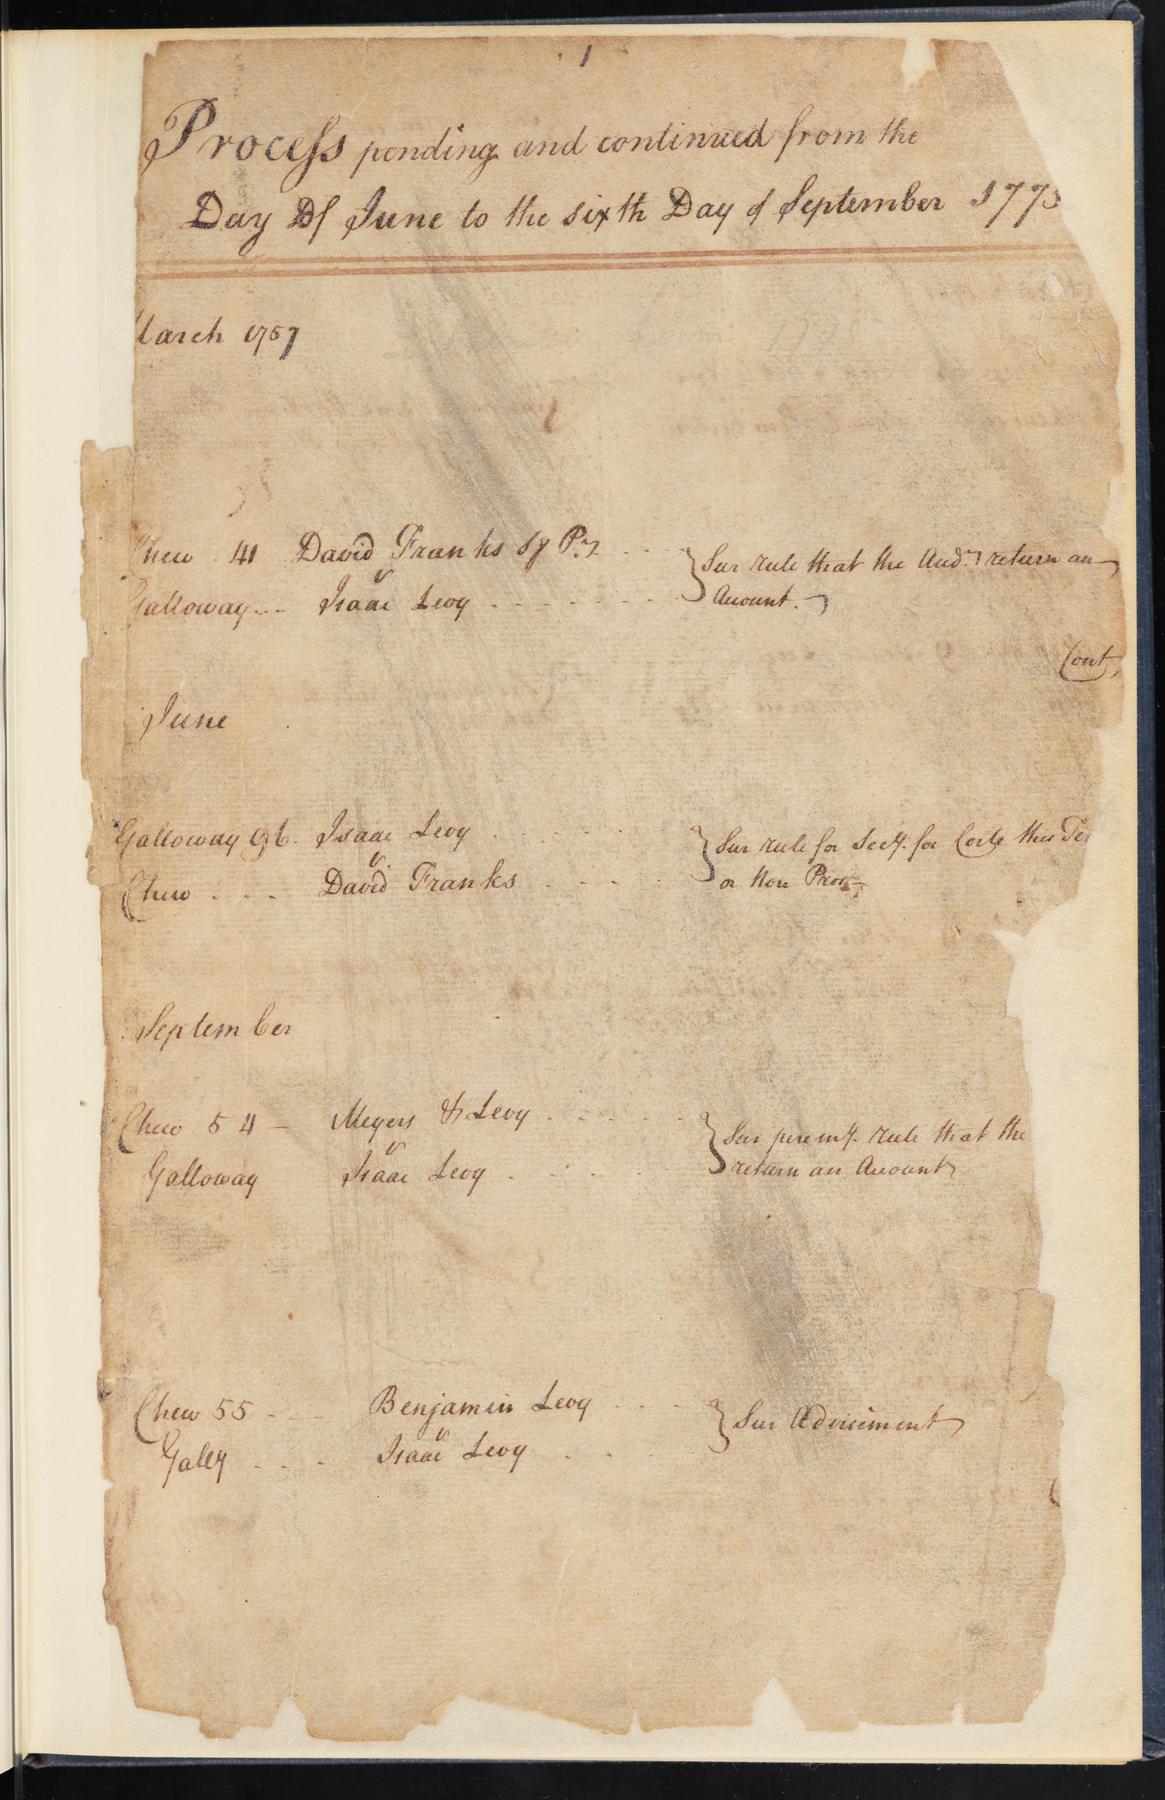 1
Process pending and continued from the
Day Of June to the sixth Day of September 1773
March 1757
Chew 41 David Franks
v
Galloway Isaac Levy
Sur rule that the Audrs return an
Account.
Cont
June
Galloway 96. Isaac Levy
v.
Chew David Franks
Sur rule for Secy. for Costs this Ter
or Non Pros
September
Chew 54 Meyers & Levy
v
Galloway Isaac Levy
Sur peremy. rule that the
return an Account
Chew 55 Benjamin Levy
v
Galey Isaac Levy
Sur Advisement